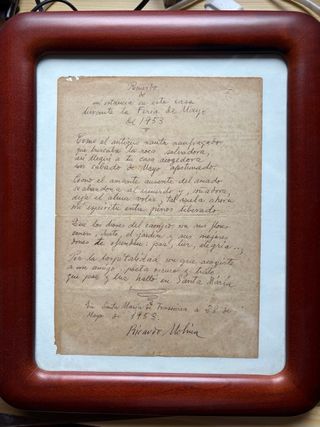 Recuerdo
de
mi estancia en esta casa
durante la Feria de Mayo
de 1953
Como el antiguo nauta naufragador
que buscaba la roca salvadora,
así llegué a tu casa acogedora
un sábado de Mayo apesumado.
Como el amante ausente del amado
se abandona al recuerdo y, soñadora,
deja el alma volar, tal vuela ahora
mi espíritu entre pinos liberado.
Que los dones del campo con sus flores
con el jardín y sus mejores
dones te ofrenden: paz, luz, alegría...
Por la hospitalidad con que acogiste
a un amigo, poeta oscuro y triste
que paz y luz halló en Santa María
En Santa María de Trassierra a 28 de
Mayo de 1953.
Ricardo Molina